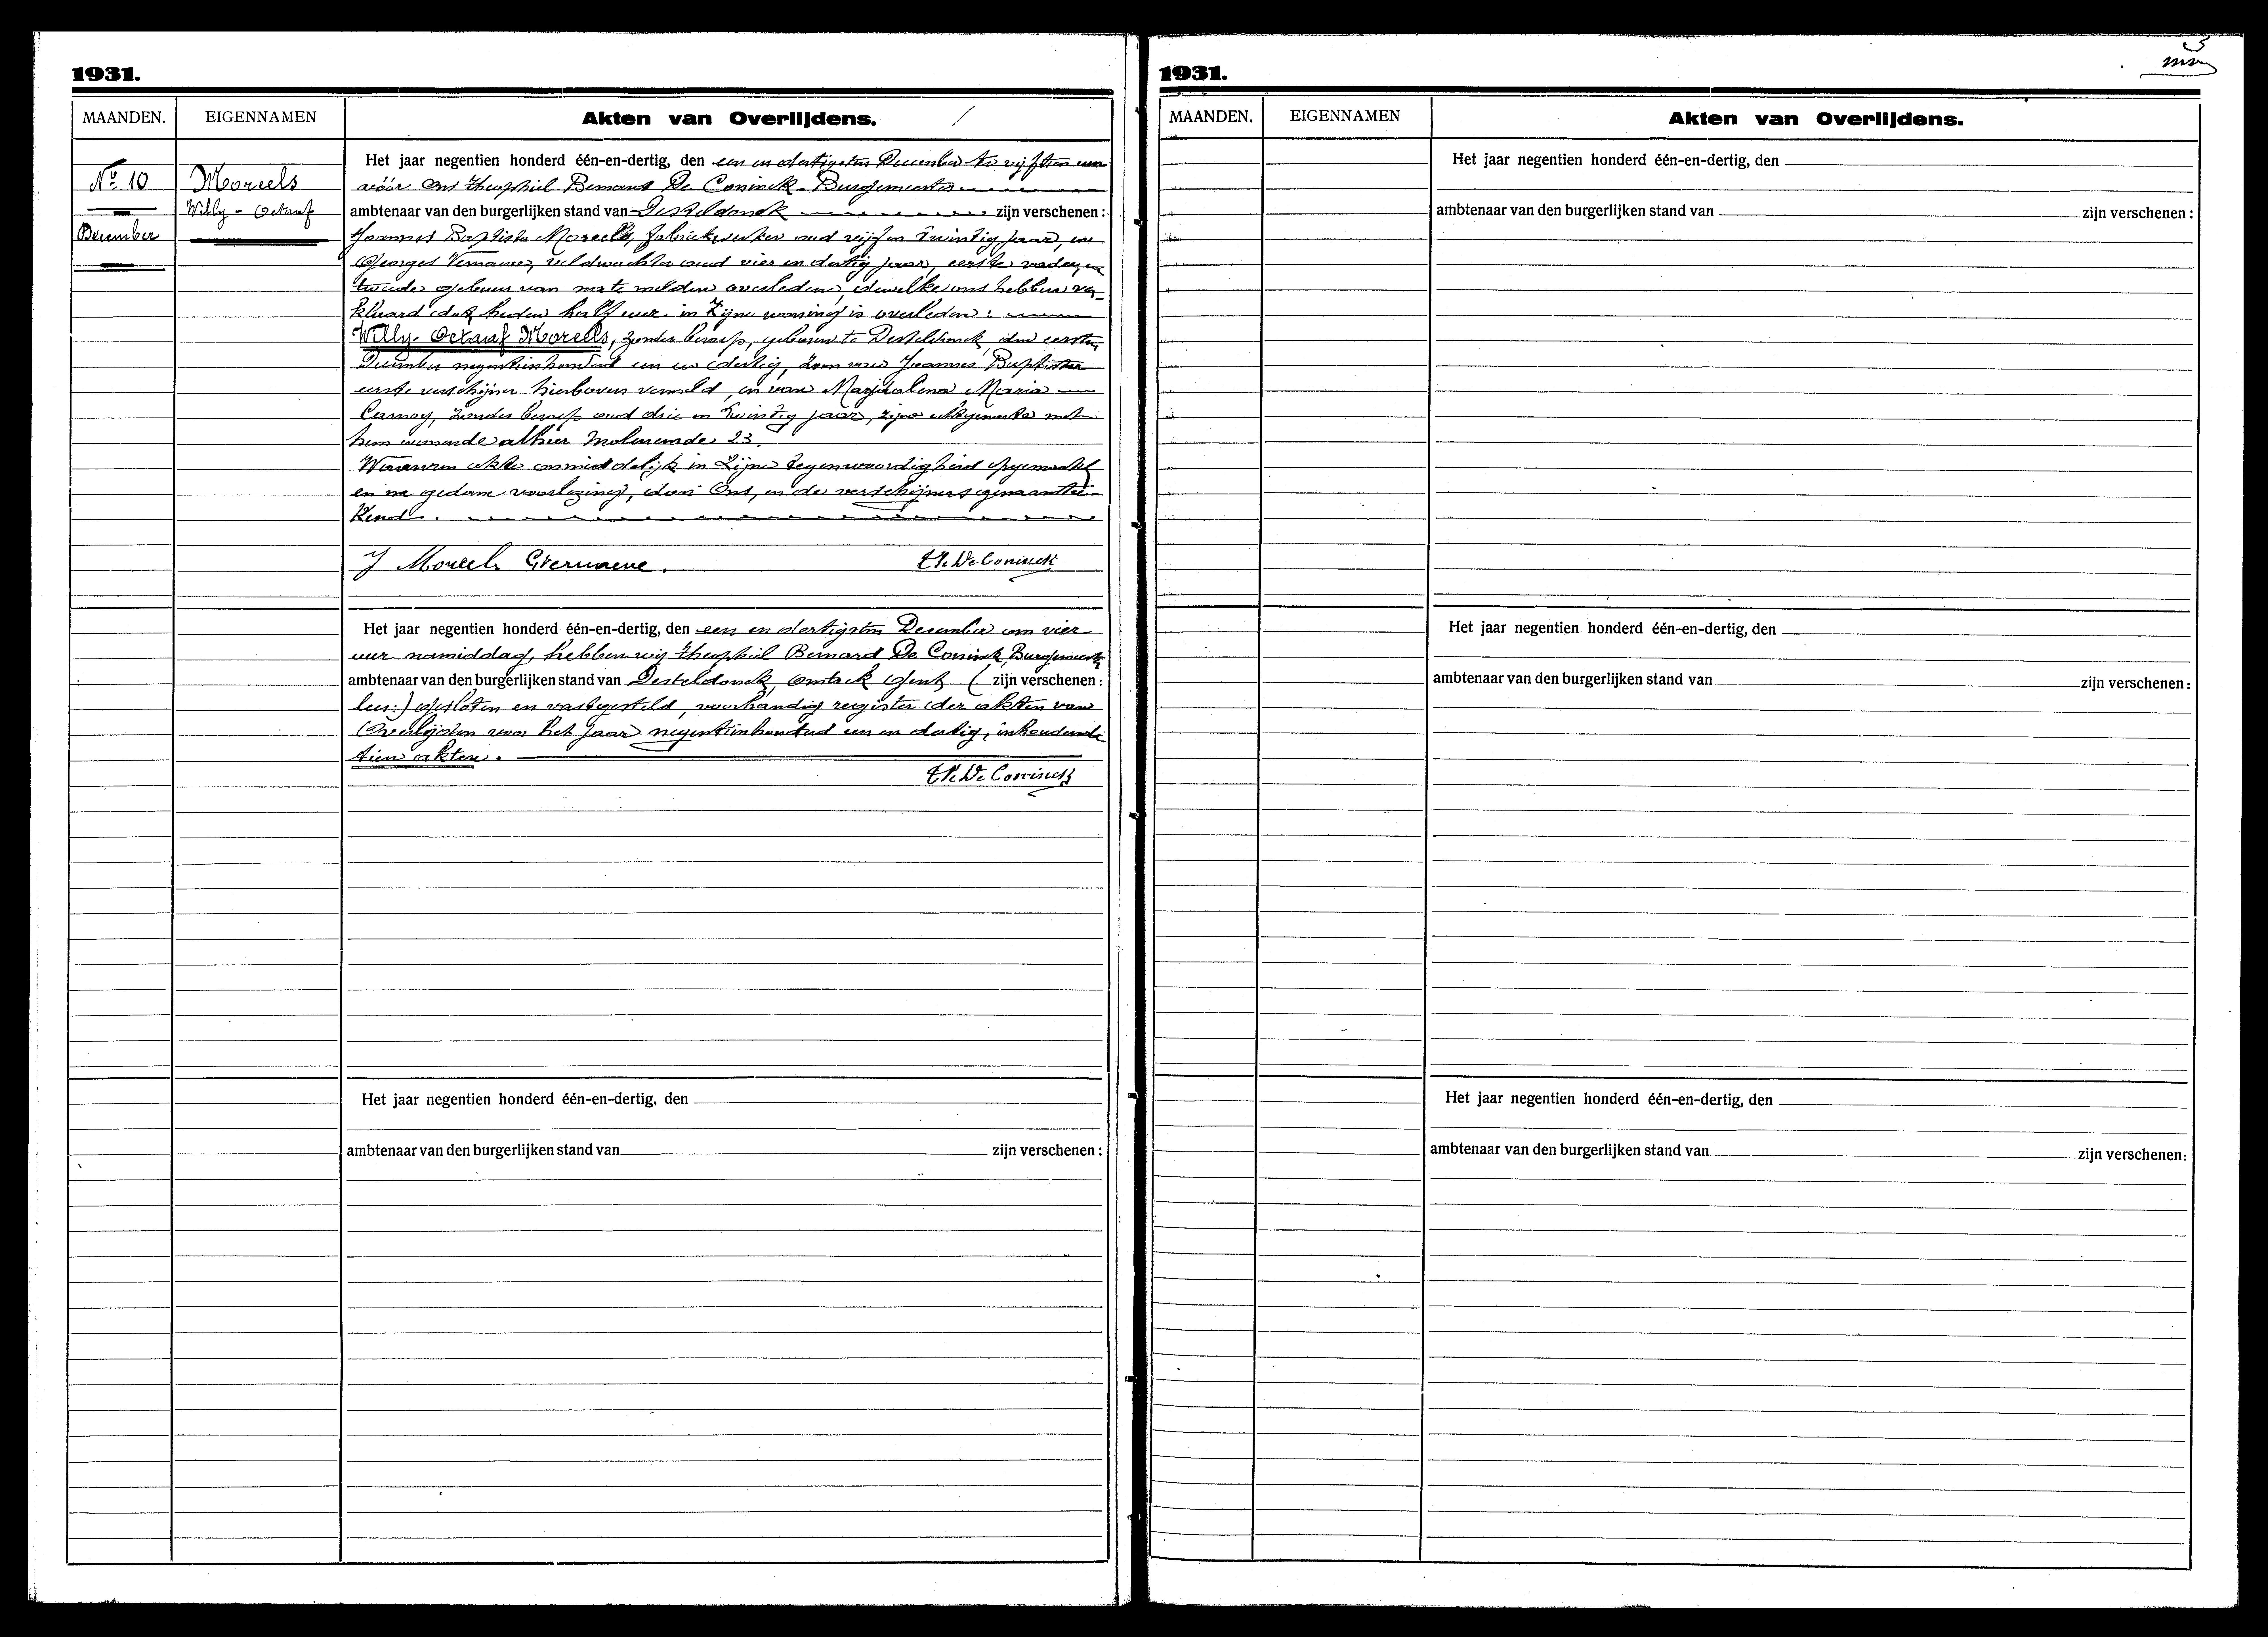 1931.
MAANDEN. EIGENNAMEN Akten van Overlijdens.
Het jaar negentien honderd één-en-dertig, den een en dertigsten December te vijftien uur
No 10 Moreels vóór Ons theophiel Bernard De Coninck Burgemeester
Willy - Octaaf ambtenaar van den burgerlijken stand van Desteldonck zijn verschenen:
December Joannes Baptista Moreels, fabriekwerker oud vijf en twintig jaar, en
Georges Vernaeve, veldwachter oud vier en dertig jaar, eerste vader, en
tweede gebuur van na te melden overledene, dewelke ons hebben ver-
klaard dat heden half uur in zijne woning is overleden:
Willy-Octaaf Moreels, zonder beroep, geboren te Desteldonck, den eersten
December negentienhonderd een en dertig, zoon van Joannes Baptista
eerste verschijner hierboven vermeld, en van Magdalena Maria
Carnoy, zonder beroep oud drie en twintig jaar, zijne echtgenoote met
hem wonende alhier Moleneinde 23.
Waarvan akte onmiddelijk in zijne tegenwoordigheid opgemaakt
en na gedane voorlezing, door Ons, en de verschijners genaamtee-
kend.
J Moreels GVernaeve. Th. De Coninck
Het jaar negentien honderd één-en-dertig, den een en dertigsten December om vier
uur namiddag, hebben wij theophiel Bernard De Coninck, Burgemeester
ambtenaar van den burgerlijken stand van Desteldonck, omtrek Gent (zijn verschenen:
lees:) gesloten en vastgesteld, voorhandig register der akten van
Overlijden voor het jaar negentienhonderd een en dertig, inhoudende
tien akten.
Th. De Coninck
Het jaar negentien honderd één-en-dertig, den
ambtenaar van den burgerlijken stand van zijn verschenen:
3
1931.
MAANDEN. EIGENNAMEN Akten van Overlijdens.
Het jaar negentien honderd één-en-dertig, den
ambtenaar van den burgerlijken stand van zijn verschenen:
Het jaar negentien honderd één-en-dertig, den
ambtenaar van den burgerlijken stand van zijn verschenen:
Het jaar negentien honderd één-en-dertig, den
ambtenaar van den burgerlijken stand van zijn verschenen: